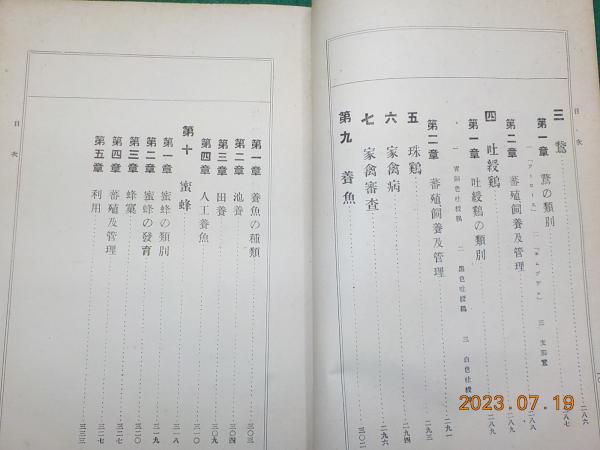 目次
三 鵞 二八六
第一章 鵞の類別 二八七
第二章 蕃殖飼養及管理 二八八
四 吐綬鶏 二八九
第一章 吐綬鶏の類別 二八九
一 青銅色吐綬鶏 二 黒色吐綬鶏 三 白色吐綬
第二章 蕃殖飼養及管理 二九一
五 珠鶏 二九三
六 家禽病 二九四
七 家禽審査 二九六
第九 養魚 三〇二
目次
第一章 養魚の種類 三〇三
第二章 池養 三〇四
第三章 田養 三〇九
第四章 人工養魚 三一〇
第十 蜜蜂 三一八
第一章 蜜蜂の類別 三一八
第二章 蜜蜂の發育 三一九
第三章 蜂窠 三二七
第四章 蕃殖及管理 三二七
第五章 利用 三三三
2023.07.19